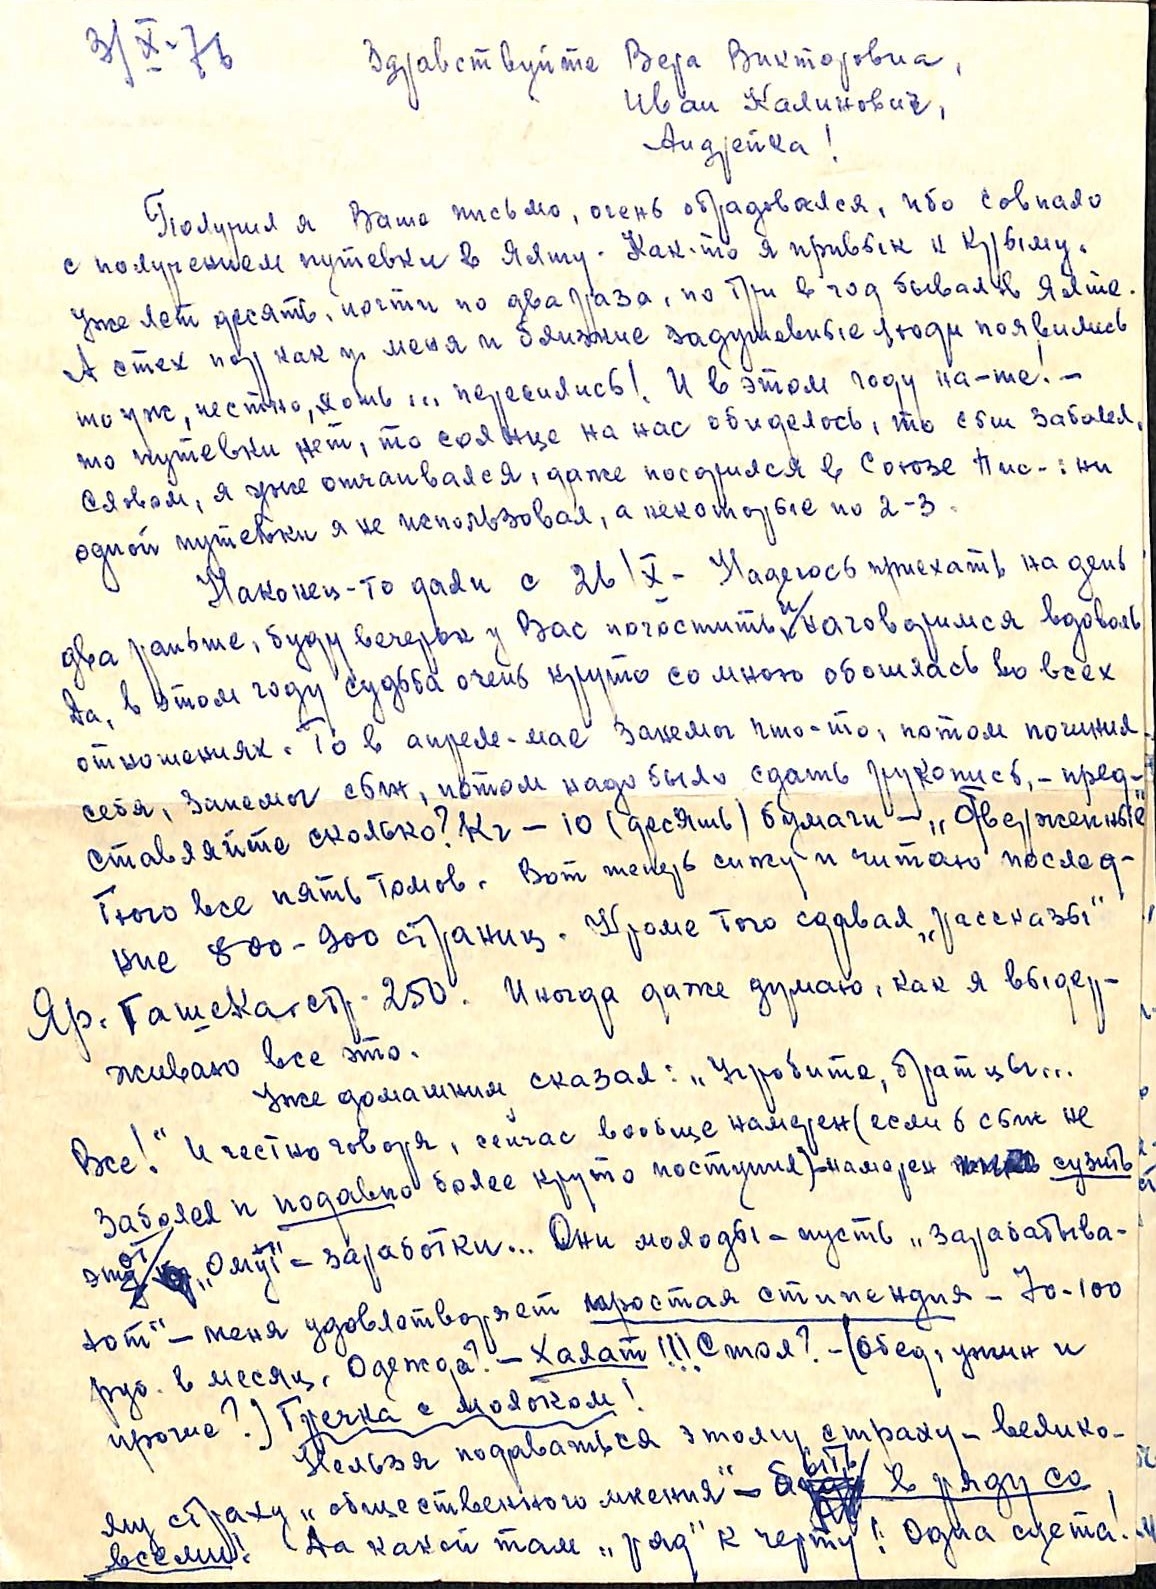 3/X-76
Здравствуйте Вера Викторовна,
Иван Калинович,
Андрейка!
Получил я Ваше письмо, очень обрадовался, ибо совпало
с получением путевки в Ялту. Как-то я привык к Крыму.
Уже лет десять, почти по два раза, по три в год бывал в Ялте.
А с тех пор как у меня и близкие задушевные люди появились
то уж, честно, хоть ... переселись! И в этом году на-те! -
то путевки нет, то солнце на нас обиделось, то сын заболел,
словом, я уже отчаивался, даже поссорился в Союзе Пис-: ни
одной путевки я не использовал, а некоторые по 2-3.
Наконец-то дали с 26/X- Надеюсь приехать на день
два раньше, буду вечерок у Вас погостить, и наговоримся вдоволь
Да, в этом году судьба очень круто со мною обошлась во всех
отношениях. То в апреле-мае занемог что-то, потом починил
себя, занемог сын, потом надо было сдать рукопись, - пред-
ставляйте сколько? Кг - 10 (десять) бумаги - „Отверженные"
Гюго все пять томов. Вот теперь сижу и читаю послед-
ние 800-900 страниц. Кроме того сдавал „рассказы"
Яр. Гашека, стр. 250. Иногда даже думаю, как я выдер-
живаю все это.
Уже домашним сказал: „Угробите, братцы...
Все!" И честно говоря, сейчас вообще намерен (если б сын не
заболел и подавно более круто поступил) - намерен сузить
этот „Омут" - заработки... Они молоды - пусть „зарабатыва-
ют" - меня удовлетворяет простая стипендия - 70-100
руб. в месяц. Одежда? - Халат!!! Стол? - (Обед, ужин и
прочие?) Гречка с молоком!
Нельзя подаваться этому страху - велико-
му страху „общественного мнения" - быть в ряду со
всеми! Да какой там „ряд" к черту! Одна суета!